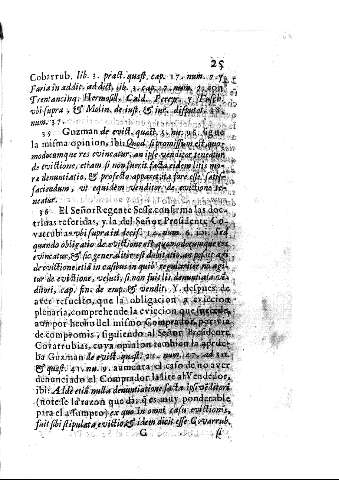 25
Cobarrub. lib. 3. pract. quæst. cap. 17. num. 7. y
Faria in addit. ad dict. lib. 3. cap. 17. num. 7. con
Trentancinq; Hermosill. Cald. Pereyr. y
vbi supra, & Molin. de iust. & iur. disputat.
num. 37.
35 Guzman de evict. quæst. 3. nu. 96. sigue
la misma opinion, ibi: Quod si promissum est quo-
modocumque res evincatur, an ipse venditor teneatur
de evictione, etiam si non fuerit facta eidem litis mo-
ra denuntiatio, & profecto apparet ita fure esse satis-
faciendum, vt equidem venditor de evictione te-
neatur.
36 El Señor Regente Sesse confirma las doc-
trinas referidas, y la del Señor Presidente Co-
varrubias vbi supra in decis. 12. num. 6. ibi: Sed
quando obligatio de evictione est quomodocumque res
evincatur, & sic generaliter est debitatio, an possit agi
de evictione, etiã in casibus in quib' regulariter nō agi-
tur de evictione, veluti, si non fuit lis denuntiata ven-
ditori, cap. fin. de emp. & vendit. Y despues de
aver resuelto, que la obligacion à eviccion
plenaria, comprehende la eviccion que
aun por hecho del mismo Comprador, por via
de compromis, siguiendo al Señor Presidente
Covarrubias, cuya opinion tambien la aprue-
ba Guzman de evict. quæst. 21. num. 27. ad
& quæst. 41. nu. 9. aumenta el caso de no aver
denunciado el Comprador la lite al Vendedor,
ibi: Adde etiã nulla denuntiatione facta ipsi vẽditori
(notese la razon que dà, q̃ es muy ponderable
para el assumpto) ex quo in omni casu evictionis,
fuit sibi stipulata evictio, & idem dicit esse Covarrub.
G si